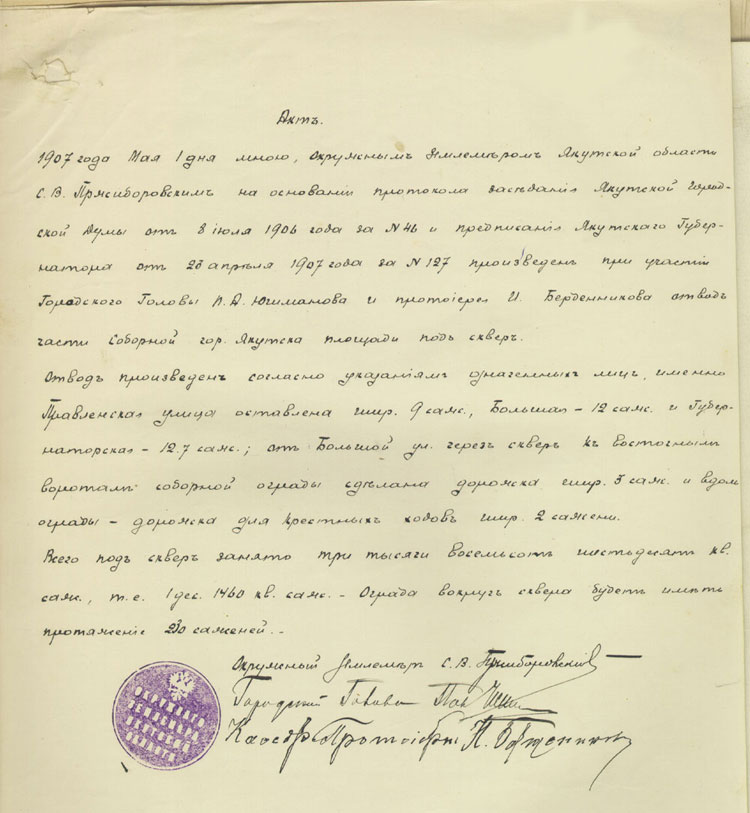 Актъ.
1907 года Мая 1 дня мною, окружнымъ Землемѣромъ Якутской области
С. В. Пржиборовскимъ на основаніи протокола засѣданія Якутской Город-
ской Думы отъ 8 іюля 1906 года за № 46 и предписанія Якутскаго Губер-
натора отъ 28 апрѣля 1907 года за № 127 произведенъ при участіи
Городского Головы П. А. Юшманова и протоіерея И. Берденникова отводъ
части Соборной гор. Якутска площади подъ скверъ.
Отводъ произведенъ согласно указаніямъ означенныхъ лицъ, именно
Правленская улица оставлена шир. 9 саж., Большая - 12 саж. и Губер-
наторская - 12.7 саж.; отъ Большой ул. черезъ скверъ къ восточнымъ
воротамъ соборной ограды сдѣлана дорожка шир. 3 саж. и вдоль
ограды - дорожка для крестныхъ ходовъ шир. 2 сажени.
Всего подъ скверъ занято три тысячи восемьсотъ шестьдесятъ кв.
саж., т.е. 1 дес. 1460 кв. саж. - Ограда вокругъ сквера будетъ имѣть
протяженіе 230 саженей. -
Окружный Землемѣръ С. В. Пржиборовскій
Городской Голова
Каѳедр. Протоіерей